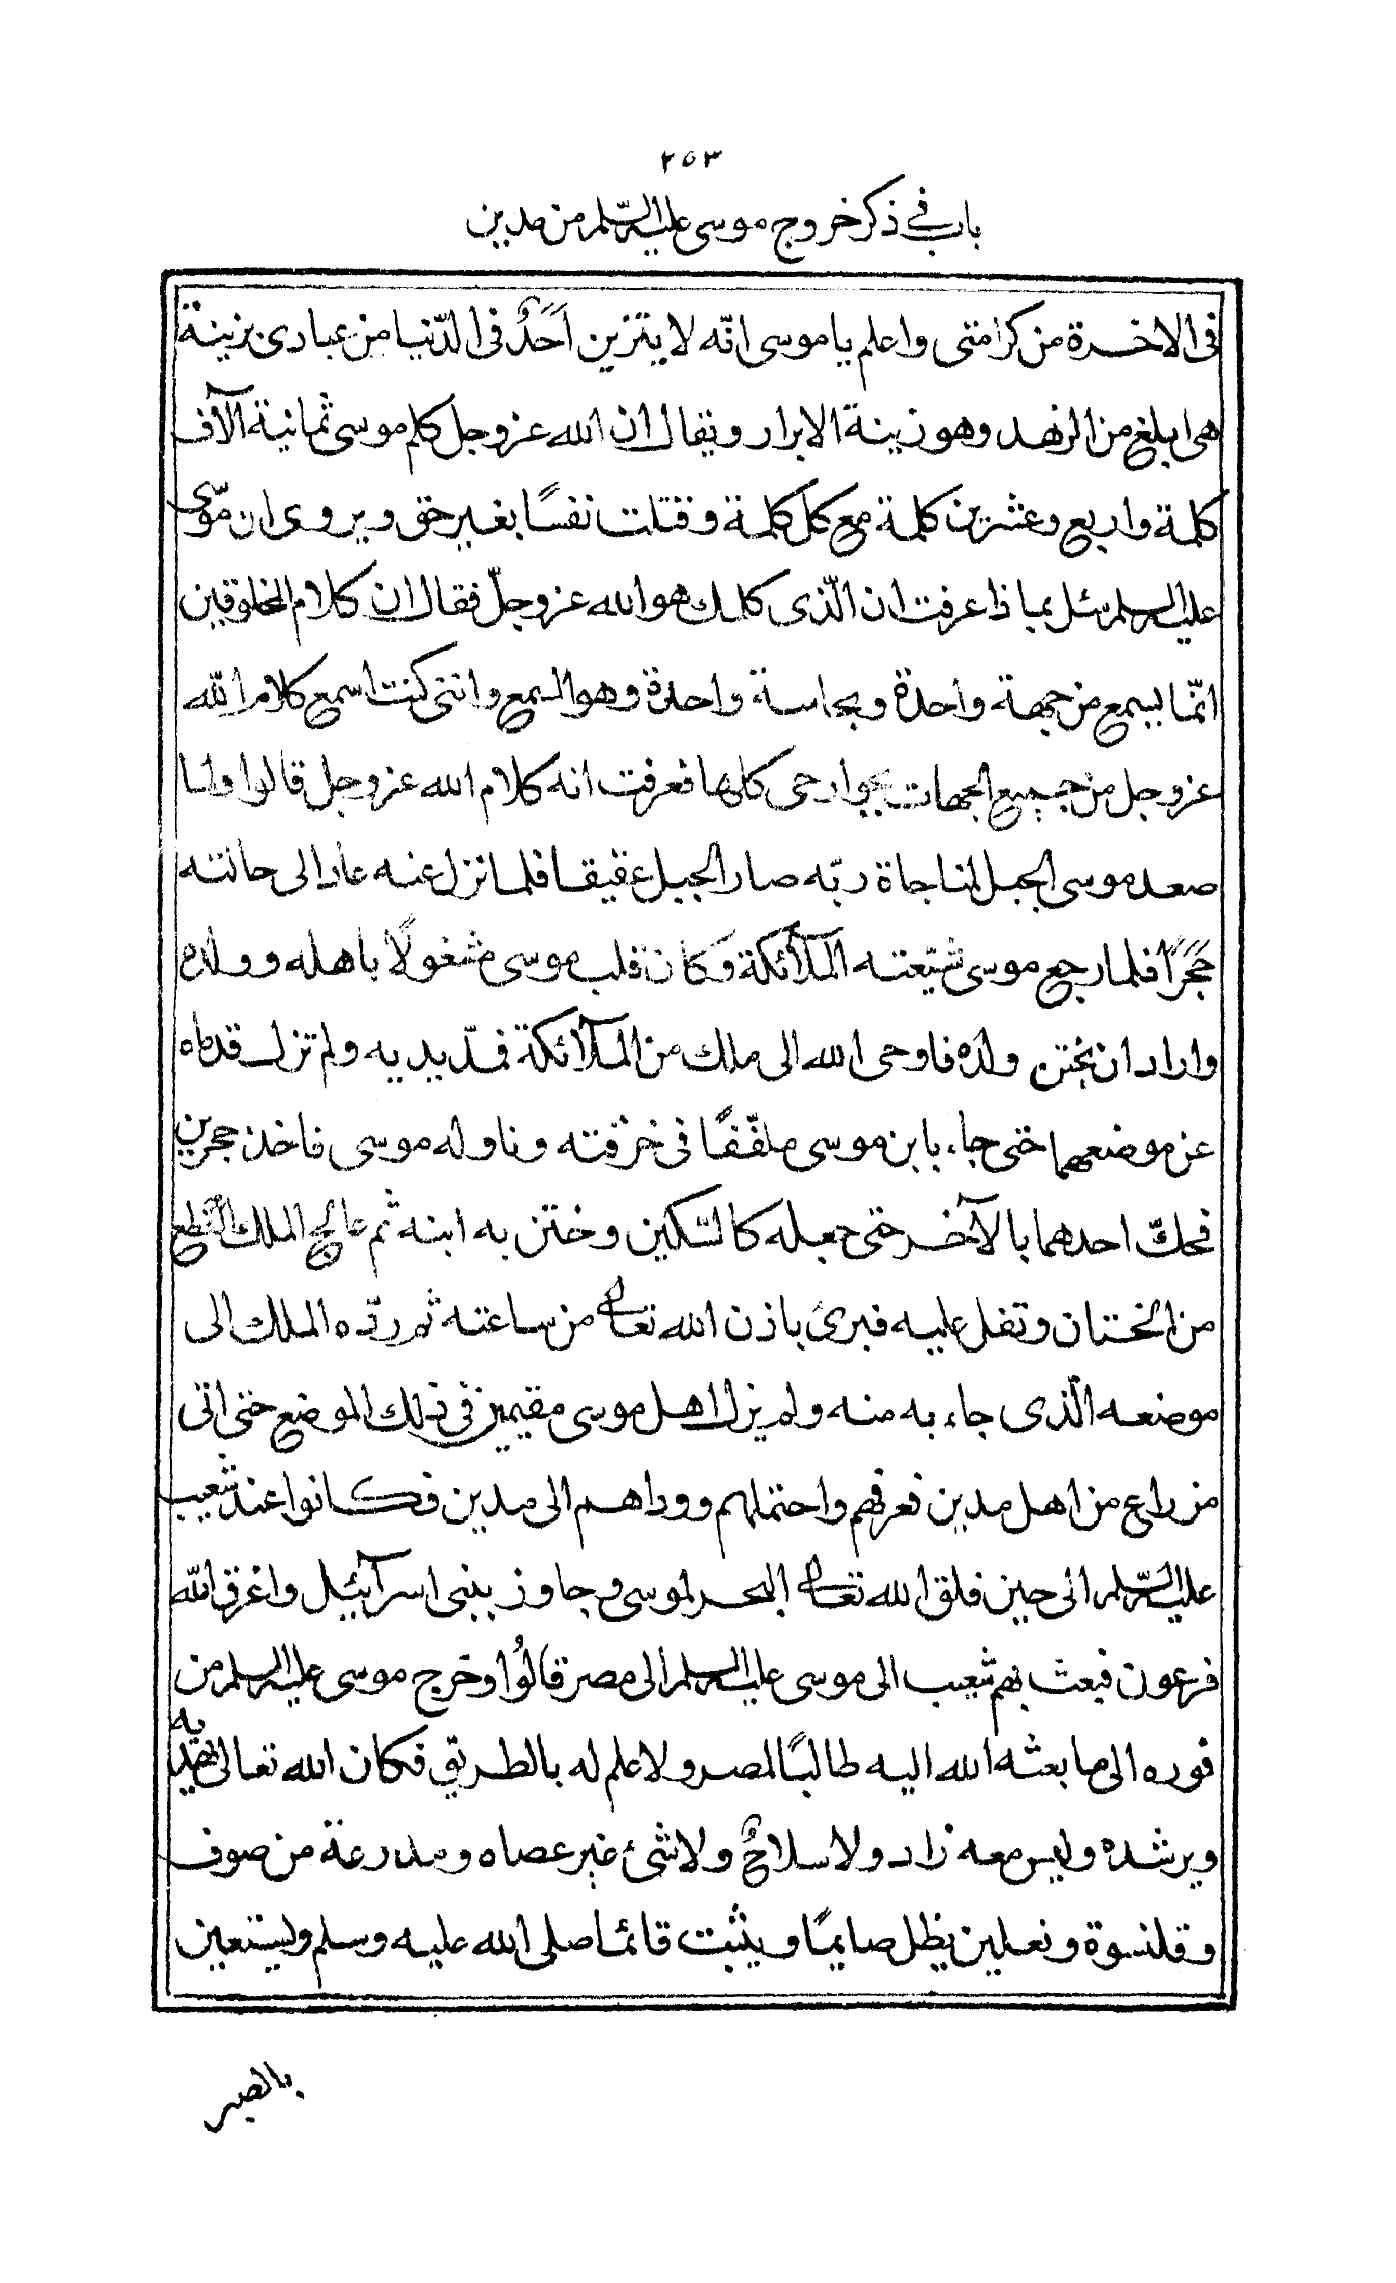 ٢٥٣
باب في ذكر خروج موسى عليه السّلم من مدين
فى الاخرة من كرامتى واعلم يا موسى انّه لا يتزين اَحَدٌ فى الدّنيا من عبادى بزينة
هى ابلغ من الزهد وهو زينة الابرار ويقال ان الله عز وجل كلم موسى ثمانية آلاف
كلمة واربع وعشرين كلمة مع كل كلمة وقتلت نفسًا بغير حق ويروى ان موسى
عليه السلم سئل بماذا عرفت ان الّذى كلمك هو الله عز وجلّ فقال ان كلام المخلوقين
انّما يسمع من جهة واحدة وبحاسة واحدة وهو السمع وانني كنت اسمع كلام الله
عز وجل من جميع الجهات بجوارحى كلها فعرفت انه كلام الله عز وجل قالوا ولما
صعد موسى الجبل لمناجاة ربّه صار الجبل عقيقا فلما نزل عنه عاد الى حالته
حَجَرًا فلما رجع موسى شيّعته الملآئكة وكان قلب موسى مشغولًا باهله وولده
واراد ان يختن ولده فاوحى الله الى ملك من الملآئكة فمدّ يديه ولم تزل قدماه
عن موضعهما حتى جاء بابن موسى ملفّفًا فى خرقته وناوله موسى فاخذ حجرين
فحكّ احدهما بالآخر حتى جعله كالسّكين وختن به ابنه ثم عالج الملك القطع
من الختان وتفل عليه فبرئ باذن الله تعالى من ساعته ثم ردّه الملك الى
موضعه الّذى جاء به منه ولم يزل اهل موسى مقيمين في ذلك الموضع حتى اتى
من راع من اهل مدين فعرفهم واحتملهم وورداهم الى مدين فكانوا عند شعيب
عليه السّلم الى حين فلق الله تعالى البحر لموسى وجاوز ببنى اسرآئيل واغرق الله
فرعون فبعث بهم شعيب الى موسى عليه السلم الى مصر قالُوا وخرج موسى عليه السلم من
فوره الى ما بعثه الله اليه طالبًا لمصر ولا علم له بالطريق فكان الله تعالى يهديه
ويرشده وليس معه زاد ولا سلاحٌ ولا شئ غير عصاه ومدرعة من صوف
وقلنسوة ونعلين يظل صايمًا ويثبت قائما صلى الله عليه وسلم وليستعين
بالصبر